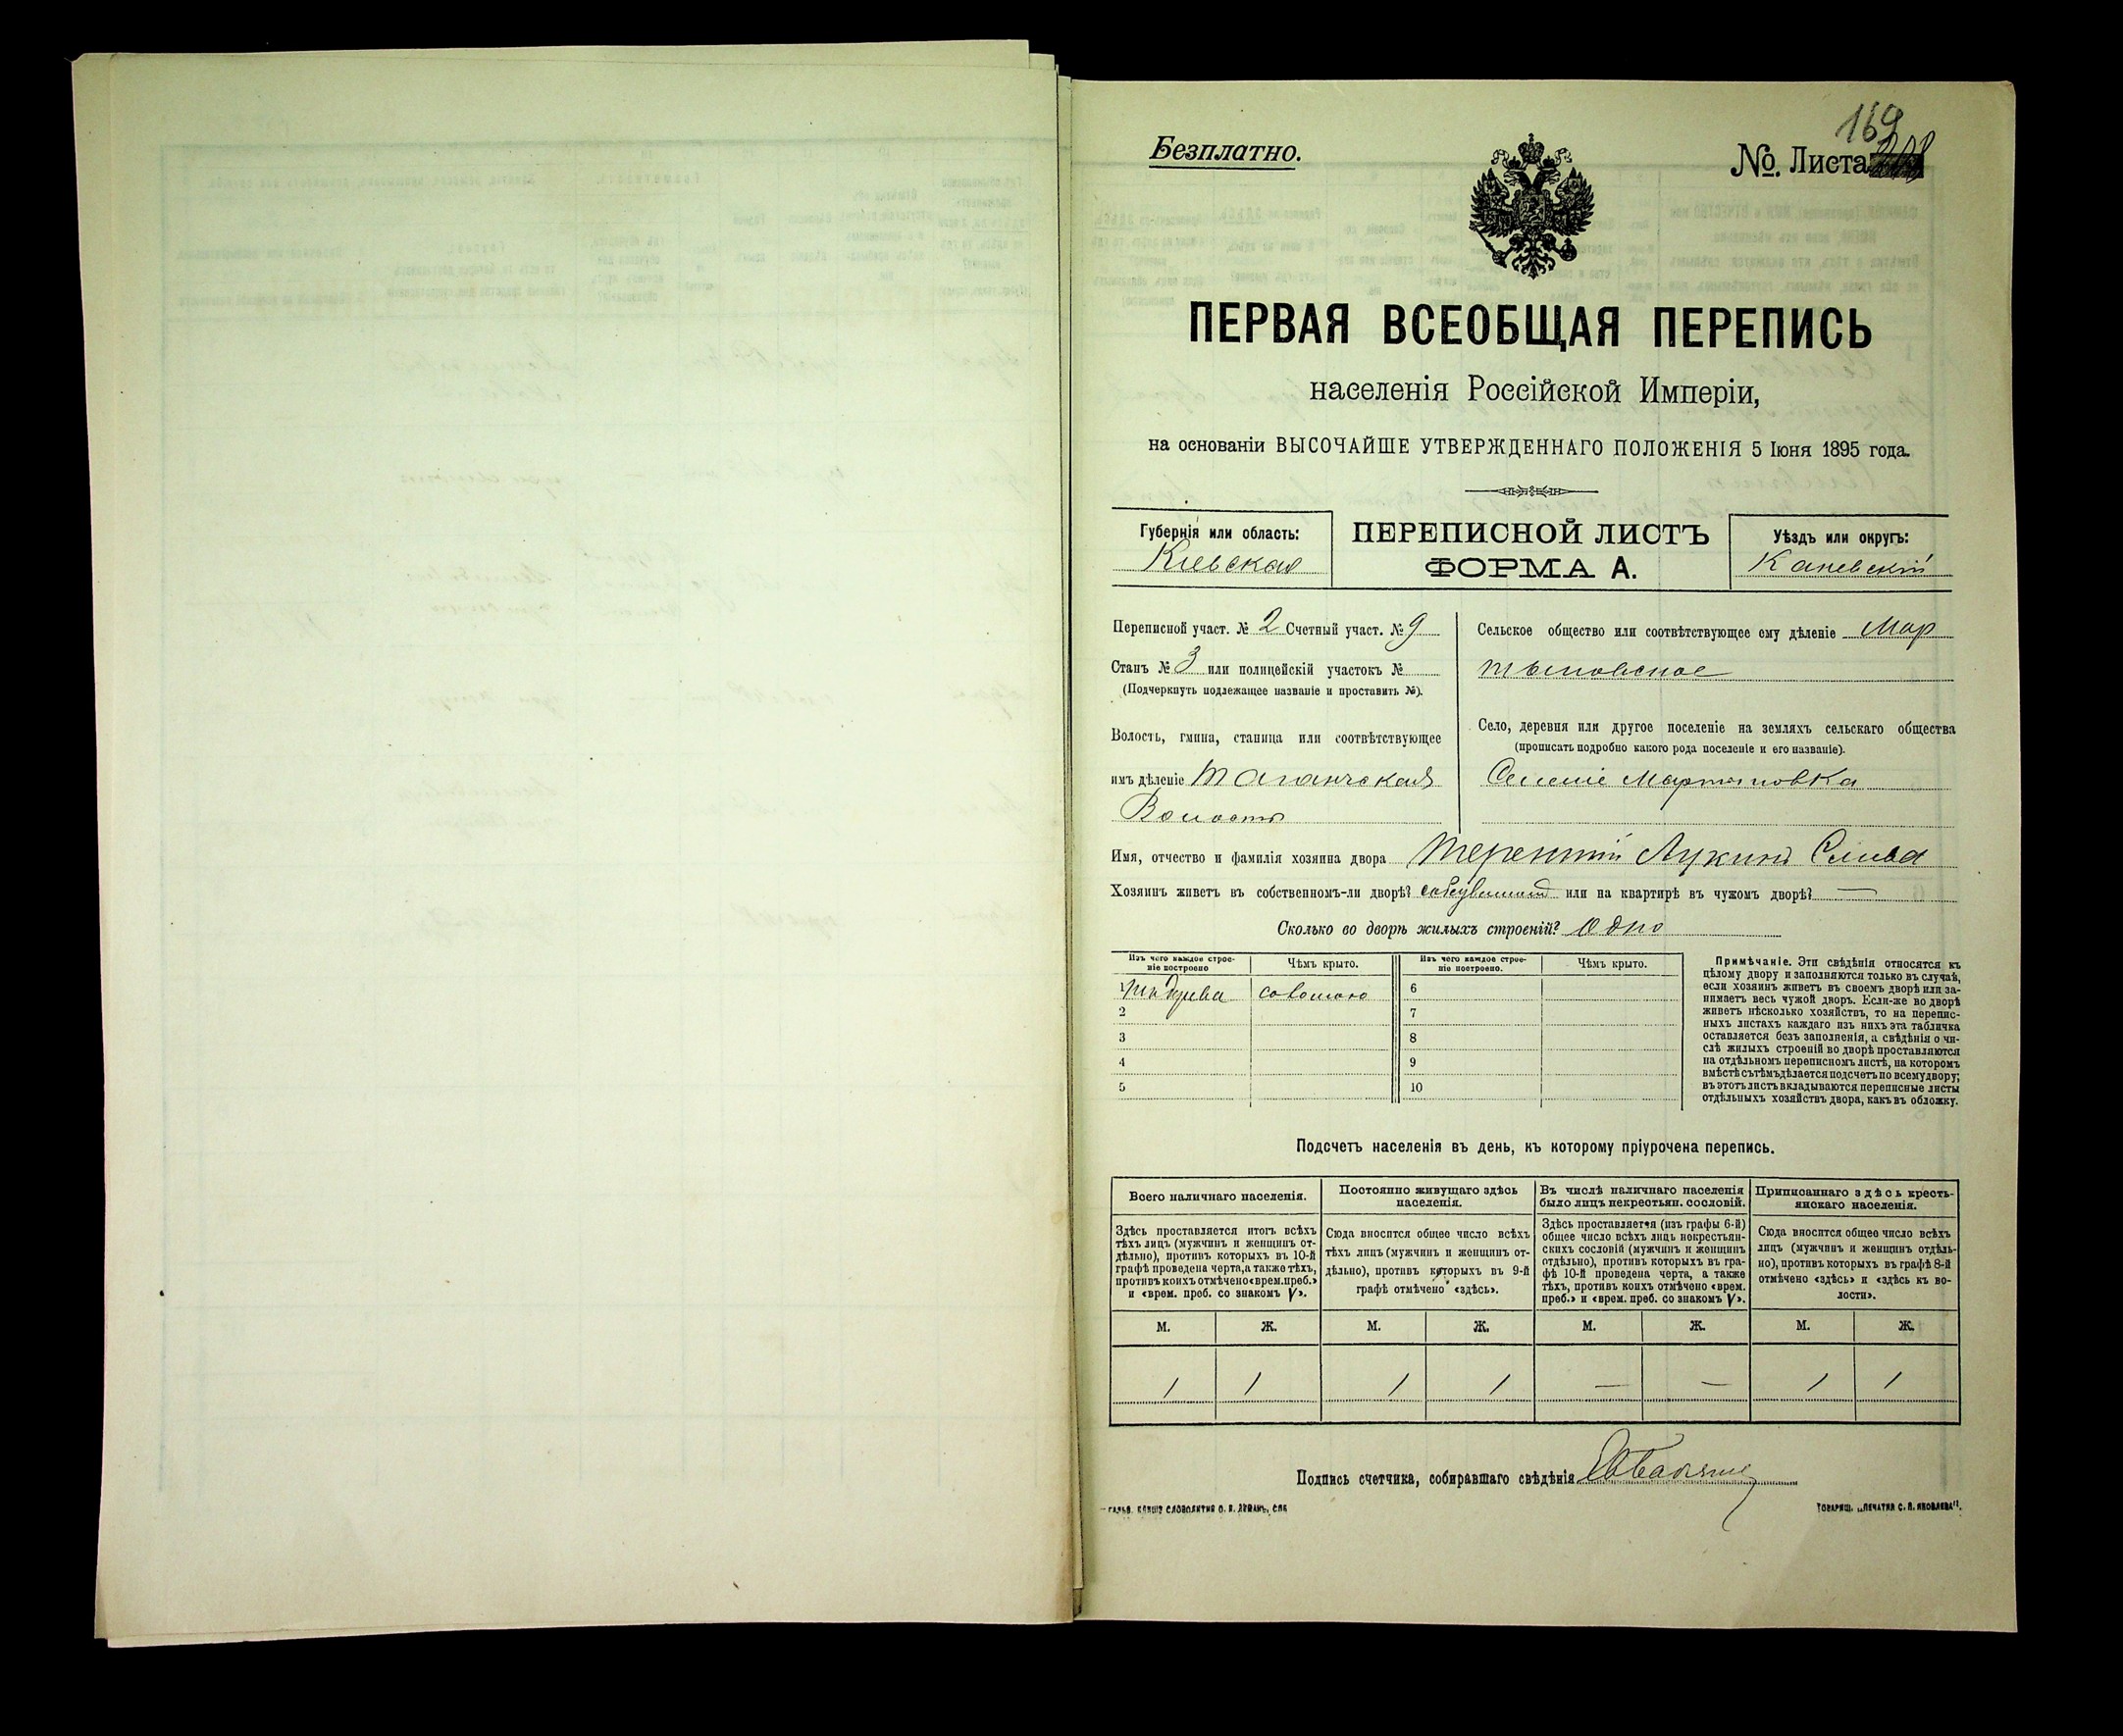 169
Безплатно.
№. Листа
ПЕРВАЯ ВСЕОБЩАЯ ПЕРЕПИСЬ
населенія Россійской Имперіи,
на основаніи ВЫСОЧАЙШЕ УТВЕРЖДЕННАГО ПОЛОЖЕНІЯ 5 Іюня 1895 года.
Губернія или область:
Кіевская
ПЕРЕПИСНОЙ ЛИСТЪ
ФОРМА А.
Уѣздъ или округъ:
Каневскій
Переписной участ. № 2 Счетный участ. № 9
Станъ № 3 или полицейскій участокъ №
(Подчеркнуть подлежащее названіе и проставить №).
Волость, гмина, станица или соотвѣтствующее
имъ дѣленіе Таганчская
Волость
Сельское общество или соотвѣтствующее ему дѣленіе Мар
тыновское
Село, деревня или другое поселеніе на земляхъ сельскаго общества
(прописать подробно какого рода поселеніе и его названіе).
Селеніе Мартыновка
Имя, отчество и фамилія хозяина двора Терентій Лукинъ Слива
Хозяинъ живетъ въ собственномъ-ли дворѣ? или на квартирѣ въ чужомъ дворѣ? —
Сколько во дворѣ жилыхъ строеній? Одно
Изъ чего каждое строе-
ніе построено
Чѣмъ крыто.
Изъ чего каждое строе-
ніе построено.
Чѣмъ крыто.
1 дерева соломою 6
2 7
3 8
4 9
5 10
Примѣчаніе. Эти свѣдѣнія относятся къ
цѣлому двору и заполняются только въ случаѣ,
если хозяинъ живетъ въ своемъ дворѣ или за-
нимаетъ весь чужой дворъ. Если-же во дворѣ
живетъ нѣсколько хозяйствъ, то на перепис-
ныхъ листахъ каждаго изъ нихъ эта табличка
оставляется безъ заполненія, а свѣдѣнія о чи-
слѣ жилыхъ строеній во дворѣ проставляются
на отдѣльномъ переписномъ листѣ, на которомъ
вмѣстѣ съ тѣмъ дѣлается подсчетъ по всему двору;
въ этотъ листъ вкладываются переписные листы
отдѣльныхъ хозяйствъ двора, какъ въ обложку.
Подсчетъ населенія въ день, къ которому пріурочена перепись.
Всего наличнаго населенія.
Здѣсь проставляется итогъ всѣхъ
тѣхъ лицъ (мужчинъ и женщинъ от-
дѣльно), противъ которыхъ въ 10-й
графѣ проведена черта, а также тѣхъ,
противъ коихъ отмѣчено «врем. преб.»
и «врем. преб. со знакомъ V».
Постоянно живущаго здѣсь
населенія.
Сюда вносится общее число всѣхъ
тѣхъ лицъ (мужчинъ и женщинъ от-
дѣльно), противъ которыхъ въ 9-й
графѣ отмѣчено «здѣсь».
Въ числѣ наличнаго населенія
было лицъ некрестьян. сословій.
Здѣсь проставляется (изъ графы 6-й)
общее число всѣхъ лицъ некрестьян-
скихъ сословій (мужчинъ и женщинъ
отдѣльно), противъ которыхъ въ гра-
фѣ 10-й проведена черта, а также
тѣхъ, противъ коихъ отмѣчено «врем.
преб.» и «врем. преб. со знакомъ V».
Приписаннаго здѣсь кресть-
янскаго населенія.
Сюда вносится общее число всѣхъ
лицъ (мужчинъ и женщинъ отдѣль-
но), противъ которыхъ въ графѣ 8-й
отмѣчено «здѣсь» и «здѣсь къ во-
лости».
М. Ж. М. Ж. М. Ж. М. Ж.
1 1 1 1 — — 1 1
Подпись счетчика, собиравшаго свѣдѣнія
ТОВАРИЩ. „ПЕЧАТНЯ С. П. ЯКОВЛЕВА“.